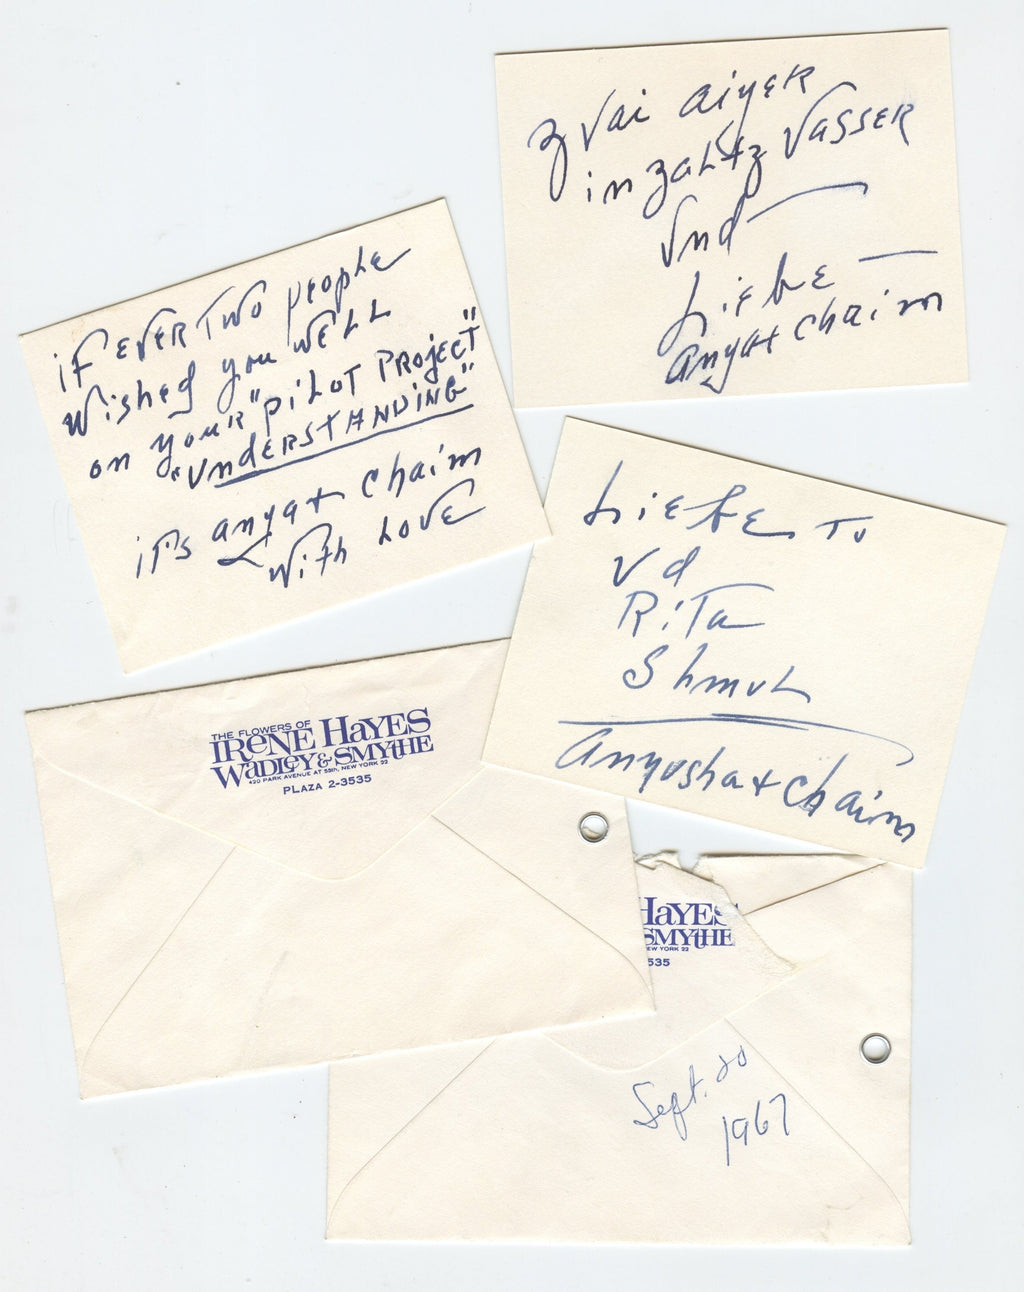 zvai aiyER
in zaltz VASSER
Und
Liebe
Anya + Chaim
iF EVER TWO people
Wished you WELL
on your "PiLOT PROjECT"
"UNDERSTANDING"
it's anya + Chaim
With LOVE
Liebe To
Ud
RiTa
Shmul
Anyusha + Chaim
THE FLOWERS OF
IRENE HAYES
WADLEY & SMYTHE
420 PARK AVENUE AT 55th, NEW YORK 22
PLAZA 2-3535
HAYES
SMYTHE
EW YORK 22
535
Sept. 20
1967